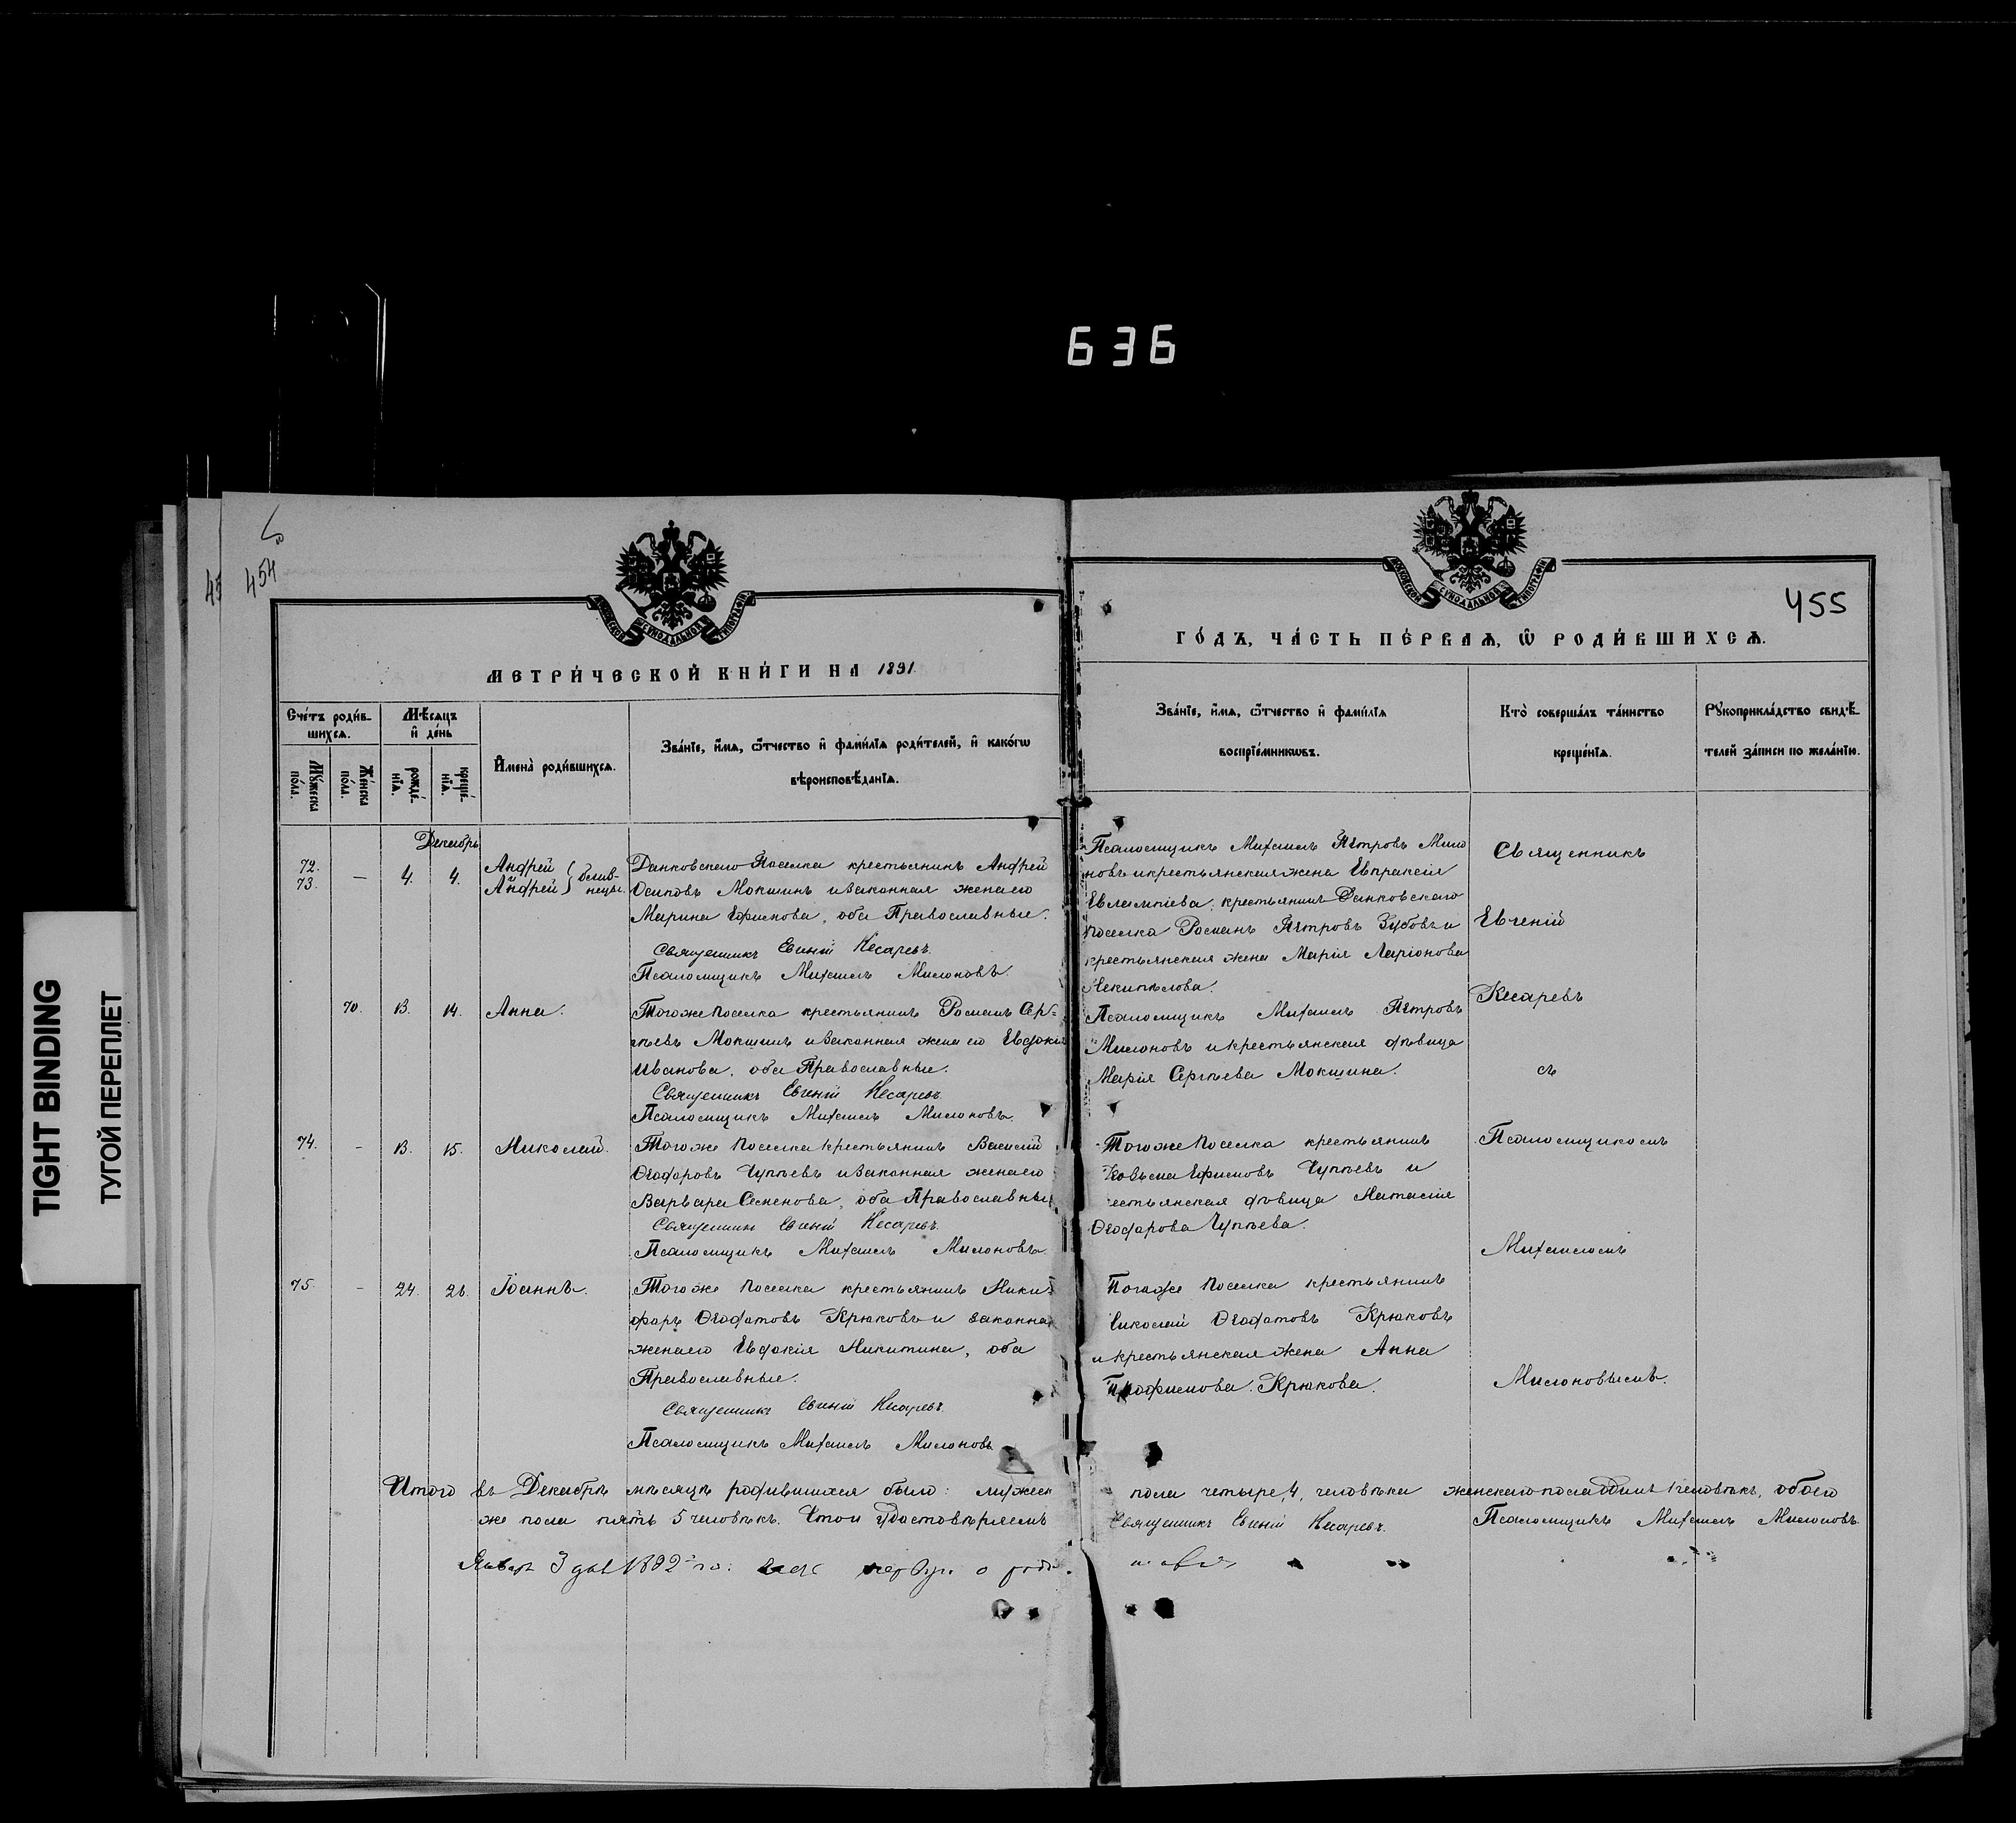 636
TIGHT BINDING
ТУГОЙ ПЕРЕПЛЕТ
454
455
МЕТРИ́ЧЕСКОЙ КНИ́ГИ НА 1891
ГО́ДЪ, ЧА́СТЬ ПЕ́РВАЯ, Ѡ РОДИ́ВШИХСЯ.
Сче́тъ роди́в-
шихся.
Мѣ́сяцъ
и де́нь
Му́жеска по́ла.
Же́нска по́ла.
рожде́-
нїя.
креще́-
нїя.
Имена̀ роди́вшихся.
Зва́нїе, и́мя, ѻ́тчество и фами́лїя роди́телей, и како́гѡ
вѣроисповѣ́данїя.
Зва́нїе, и́мя, ѻ́тчество и фами́лїя
воспрїе́мникѡвъ.
Кто̀ соверша́лъ та́инство
креще́нїя.
Рꙋкоприкла́дство свидѣ́-
телей за́писи по жела́нїю.
Декабрь
72.
73. — 4. 4. Андрей
Андрей } близ-
нецы.
Данковскаго Поселка крестьянинъ Андрей
Осиповъ Мокшинъ и законная жена его
Марина Ефимова, оба Православные.
Священникъ Евгеній Кесаревъ.
Псаломщикъ Михаилъ Милоновъ.
Псаломщикъ Михаилъ Петровъ Мило
новъ и крестьянская жена Евпраксія
Евлампіева, крестьянинъ Данковскаго
поселка Романъ Петровъ Зубовъ и
крестьянская жена Марія Ларіонова
Некипѣлова.
Священникъ
Евгеній
Кесаревъ
съ
Псаломщикомъ
Михаиломъ
Милоновымъ.
70. 13. 14. Анна.
Того же поселка крестьянинъ Романъ Сер-
гѣевъ Мокшинъ и законная жена его Евдокія
Иванова, оба Православные.
Священникъ Евгеній Кесаревъ.
Псаломщикъ Михаилъ Милоновъ.
Псаломщикъ Михаилъ Петровъ
Милоновъ и крестьянская дѣвица
Марія Сергѣева Мокшина.
74. — 13. 15. Николай.
Того же поселка крестьянинъ Василій
Ѳеодоровъ Чупѣевъ и законная жена его
Варвара Семенова, оба Православные
Священникъ Евгеній Кесаревъ.
Псаломщикъ Михаилъ Милоновъ.
Того же поселка крестьянинъ
Козьма Ефимовъ Чупѣевъ и
естьянская дѣвица Наталія
Ѳеодорова Чупѣева.
75. — 24. 26. Іоаннъ.
Того же поселка крестьянинъ Ники-
форъ Ѳеодотовъ Крюковъ и законная
жена его Евдокія Никитина, оба
Православные.
Священникъ Евгеній Кесаревъ.
Псаломщикъ Михаилъ Милоновъ
Того же поселка крестьянинъ
Николай Ѳеодотовъ Крюковъ
и крестьянская жена Анна
Трофимова Крюкова.
Итого въ Декабрѣ мѣсяцѣ родившихся было: мужеск пола четыре, 4, человѣка женскаго пола одинъ 1 человѣкъ, обоего
же пола пять 5 человѣкъ. Что и удостовѣряемъ Священникъ Евгеній Кесаревъ. Псаломщикъ Михаилъ Милоновъ.
3 1892